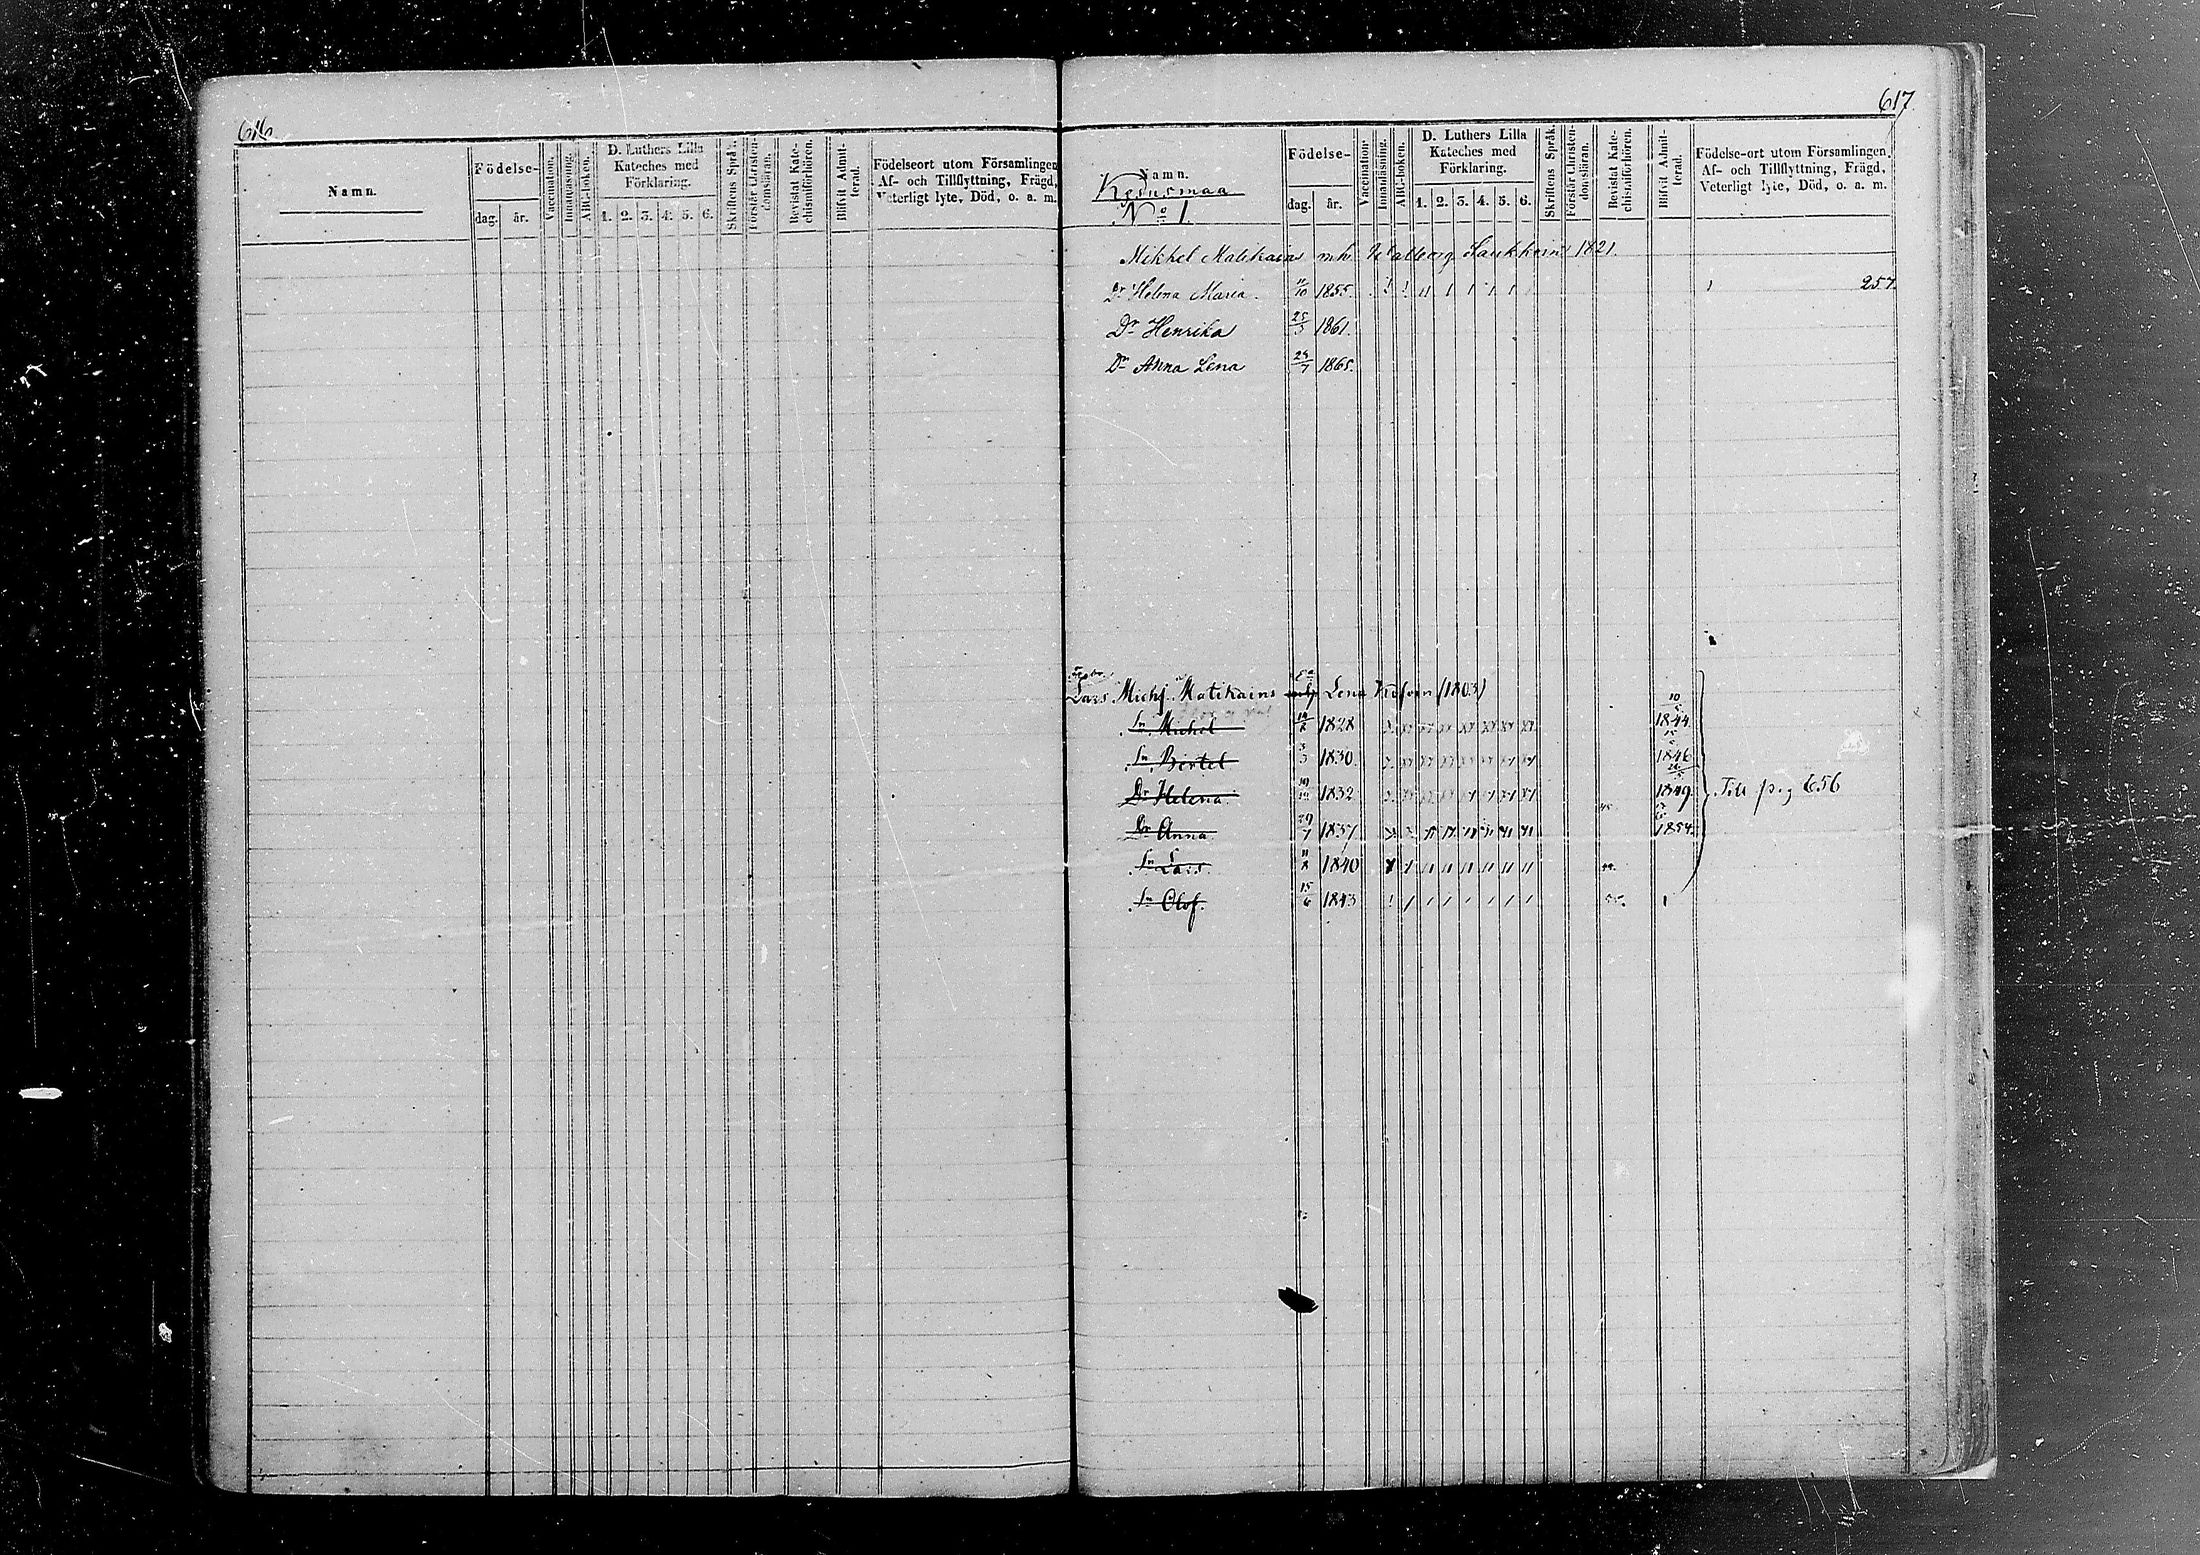 616.
Namn.
Födelse-
dag. år.
Vaccination.
Innanläsning.
ABC-boken.
D. Luthers Lilla
Kateches med
Förklaring.
1. 2. 3. 4. 5. 6.
Skriftens Språk.
Förstår Christen-
domsläran.
Bevistat Kate-
chismiförhören.
Blifvit Admit-
terad.
Födelseort utom Församlingen
Af- och Tillflyttning, Frägd,
Veterligt lyte, Död, o. a. m.
617.
Namn.
No 1.
Födelse-
dag. år.
Vaccination.
Innanläsning.
ABC-boken.
D. Luthers Lilla
Kateches med
Förklaring.
1. 2. 3. 4. 5. 6.
Skriftens Språk.
Förstår Christen-
domsläran.
Bevistat Kate-
chismiförhören.
Blifvit Admit-
terad.
Födelse-ort utom Församlingen.
Af- och Tillflyttning, Frägd,
Veterligt lyte, Död, o. a. m.
Mikkel Matikains mh. Walborg 1821.
Dr Helena Maria. 11/10 1855. 257
Dr Henrika 25/3 1861.
Dr Anna Lena 24/7 1865.
Lars Michj. Matikains Lena (1803)
Sn Michel 1828 1844
Sn Bertel 3/3 1830. 1846
Dr Helena. 1832 1849
Dr Anna 1837 1854
Sn Lars. 11/8 1840
Sn Olof. 15/6 1843
Till pag 656